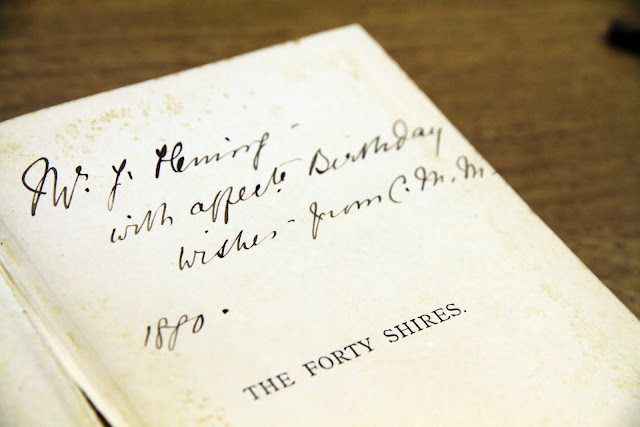 Mr. J. Fleming -
with affecte. Birthday
wishes - from C. M. M -
1880.
THE FORTY SHIRES.